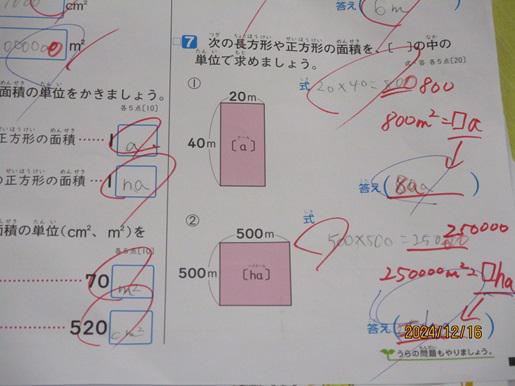 cm²
答え
6m
m²
7 次の長方形や正方形の面積を、[ ]の中の
単位で求めましょう。
各5点[20]
面積の単位をかきましょう。
各5点[10]
① 
20m
40m
[a]
式
20×40=
800
800m²=□a
答え
8a
正方形の面積……1
a
の正方形の面積…1
ha
面積の単位(cm²、m²)を
各5点[10]
70
m²
520
cm²
②
500m
500m
[ha]
式
500×500=
250000
250000m²=□ha
答え
2024/12/16
うらの問題もやりましょう。